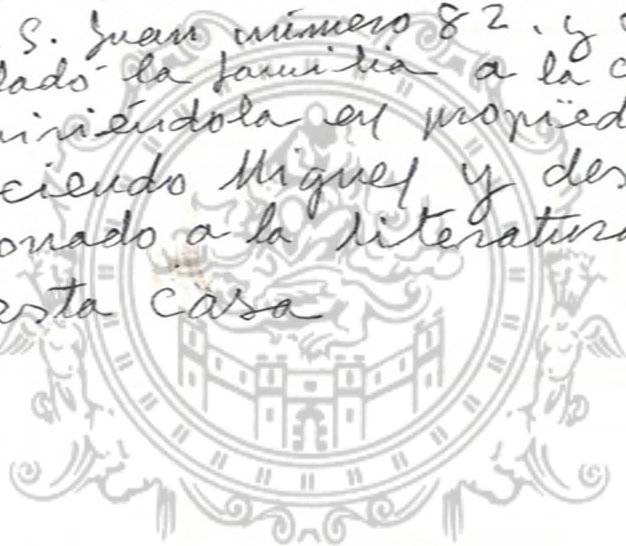 S. Juan número 82. y
lado la familia a la c
iriéndola en propied
ciendo Miguel y des
onado a la literatura
esta casa